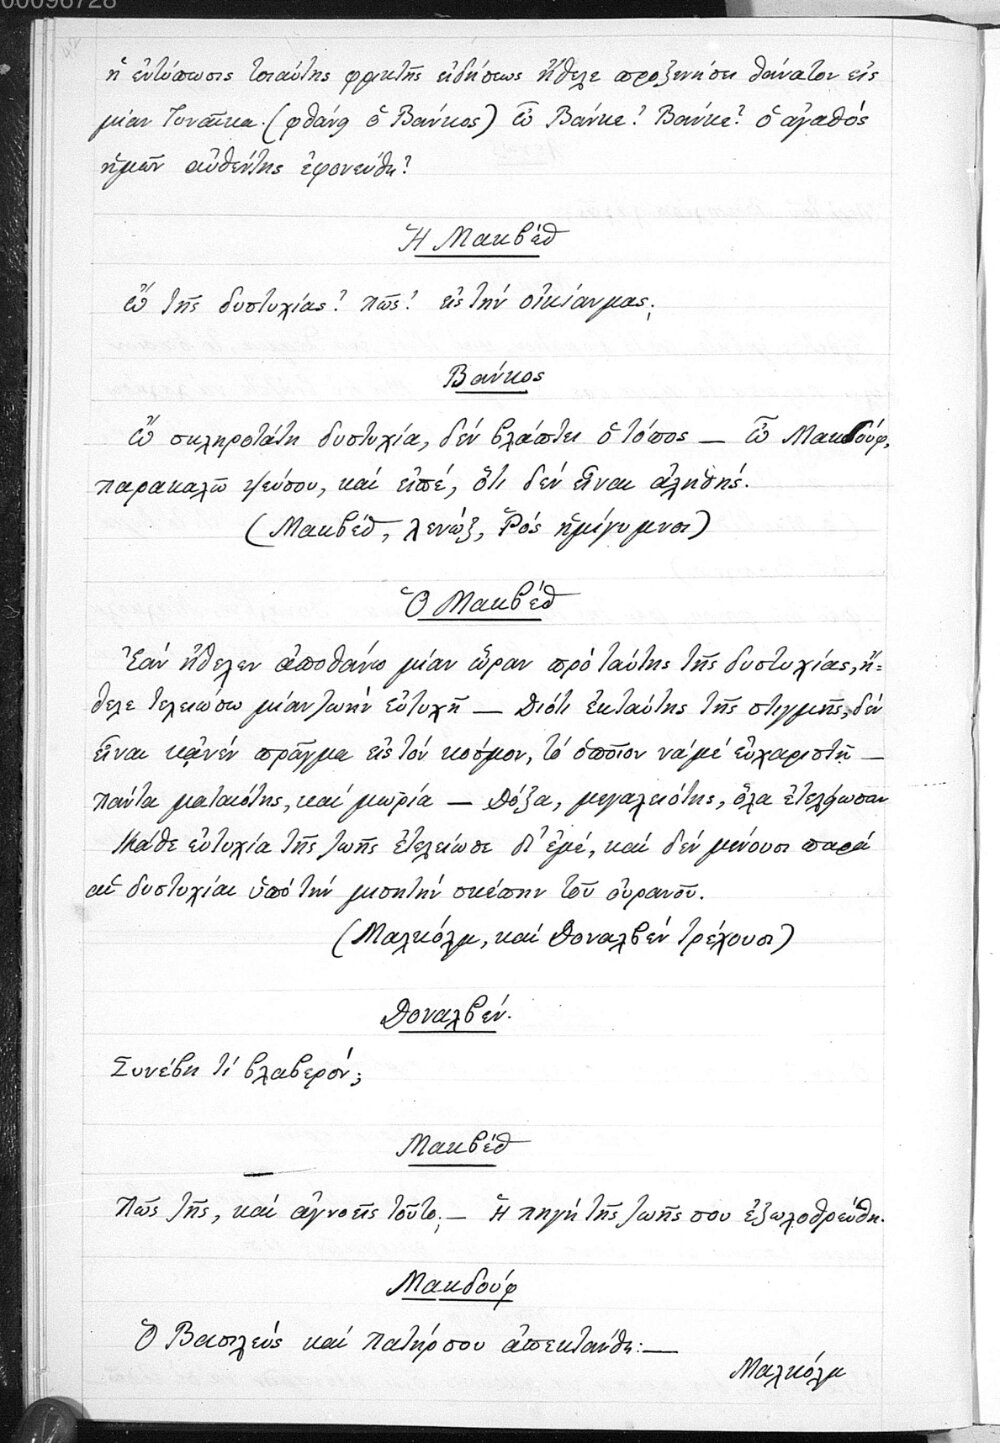 00096728
ἡ ἐντύπωσις τοιαύτης φρικτῆς εἰδήσεως ἤθελε προξενήσει θάνατον εἰς
μίαν Γυναῖκα. (φθάνει ὁ Βάνκος) ὦ Βάνκε! Βάνκε! ὁ ἀγαθός
ἡμῶν αὐθέντης ἐφονεύθη!
Ἡ Μακβέθ
ὢ τῆς δυστυχίας! πῶς! εἰς τὴν οἰκίαν μας;
Βάνκος
ὢ σκληροτάτη δυστυχία, δέν βλάπτει ὁ τόπος — ὦ Μακδούφ,
παρακαλῶ ψεύσου, καί εἰπέ, ὅτι δέν εἶναι ἀληθής.
(Μακβέθ, Λενώξ, Ῥός ἡμίγυμνοι)
Ὁ Μακβέθ
Ἐάν ἤθελεν ἀποθάνω μίαν ὥραν πρό ταύτης τῆς δυστυχίας, ἤ=
θελε τελειώσω μίαν ζωήν εὐτυχῆ — Διότι ἐκ ταύτης τῆς στιγμῆς, δέν
εἶναι κᾀνέν πρᾶγμα εἰς τόν κόσμον, τό ὁποῖον νά μέ εὐχαριστῇ —
πάντα ματαιότης, καί μωρία — Δόξα, μεγαλειότης, ὅλα ἐτελείωσαν
Κάθε εὐτυχία τῆς ζωῆς ἐτελείωσε δι' ἐμέ, καί δέν μένουσι παρά
αἱ δυστυχίαι ὑπό τήν μισητήν σκέπην τοῦ οὐρανοῦ.
(Μαλκόλμ, καί Δοναλβέν τρέχουσι)
Δοναλβέν.
Συνέβη τί βλαβερόν;
Μακβέθ
Πῶς ζῇς, καί ἀγνοεῖς τοῦτο; — Ἡ πηγή τῆς ζωῆς σου ἐξωλοθρεύθη.
Μακδούφ
Ὁ Βασιλεύς καί πατήρ σου ἀπεκτάνθη: —
Μαλκόλμ